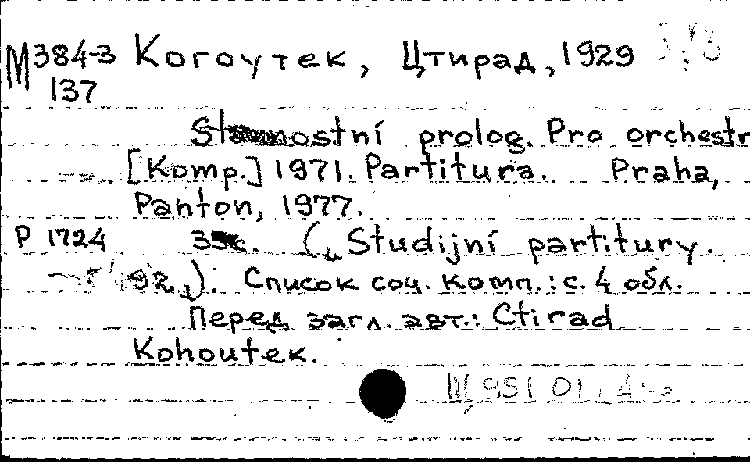 М 384-3 Когоутек, Цтирад, 1929
137
prolog. Pro orchestr
[Komp.] 1971. Partitura. Praha,
Panton, 1977.
Р 1724 („Studijní partitury.
Список соч. комп.: с. 4 обл.
Перед загл. авт.: Ctirad
Kohoutek.